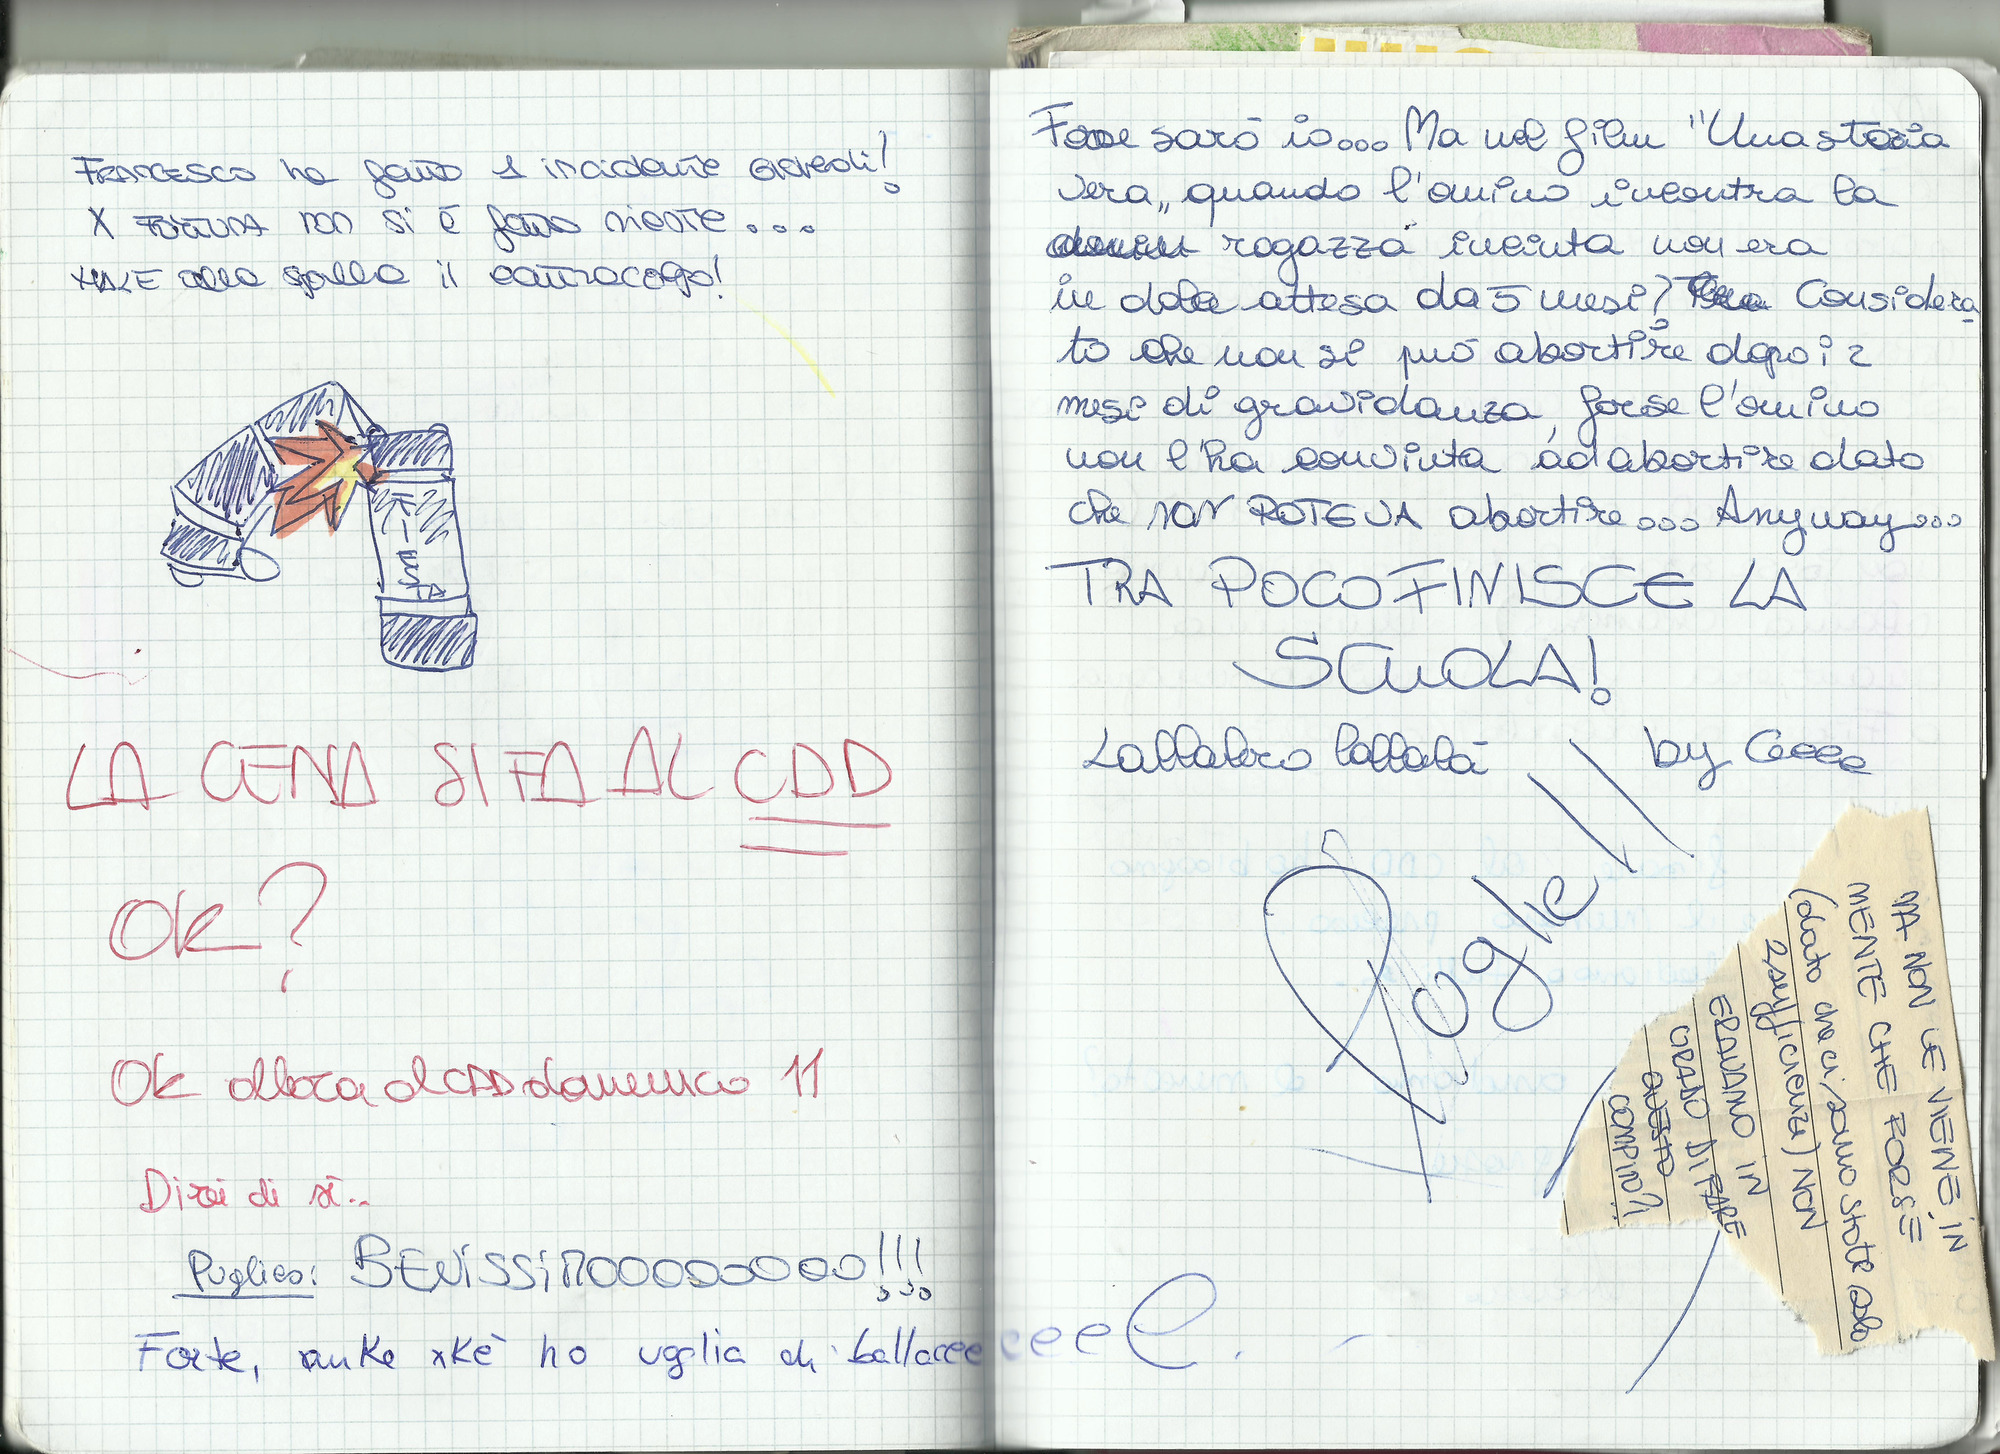 FRANCESCO ha fatto 1 incidente giovedì!
X FORTUNA non si è fatto niente...
MALE alla spalla il contraccolpo!
FIESTA
LA CENA SI FA AL CDD
Ok?
Ok allora al CDD domenica 11
Direi di sì..
Puglico: BENiSSiMOOOOOOOOO!!!
Forte, anke xkè ho voglia di ballareeeeeee.
Forse sarò io... Ma nel film "Una storia
vera„ quando l'omino incontra la
ragazza incinta non era
in dolce attesa da 5 mesi? Considera
to che non si può abortire dopo i 2
mesi di gravidanza, forse l'omino
non l'ha convinta ad abortire dato
che NON POTEVA abortire... Anyway...
TRA POCO FINISCE LA
SCUOLA!
Lallallero lallallà
by Ceee
Roglie
MA NON LE VIENE iN
MENTE CHE FORSE
(dato che ci sono state solo
2 sufficienze) NON
ERAVAMO IN
GRADO DI FARE
QUESTO
COMPITO?!